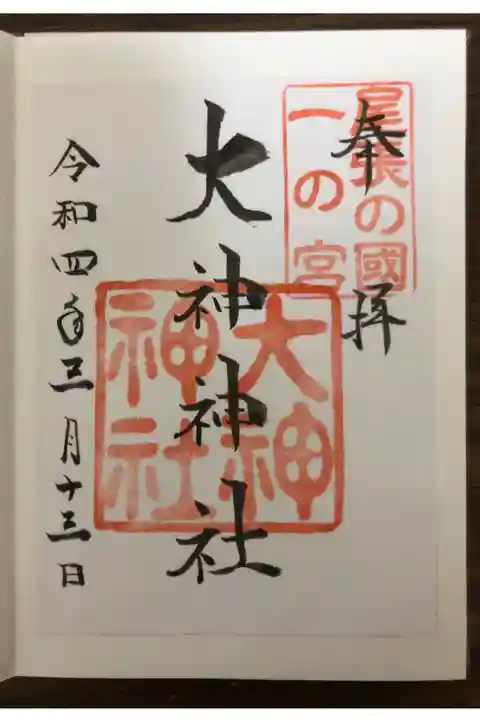 奉拝
尾張の國
一の宮
大神神社
大神
神社
令和四年三月十三日